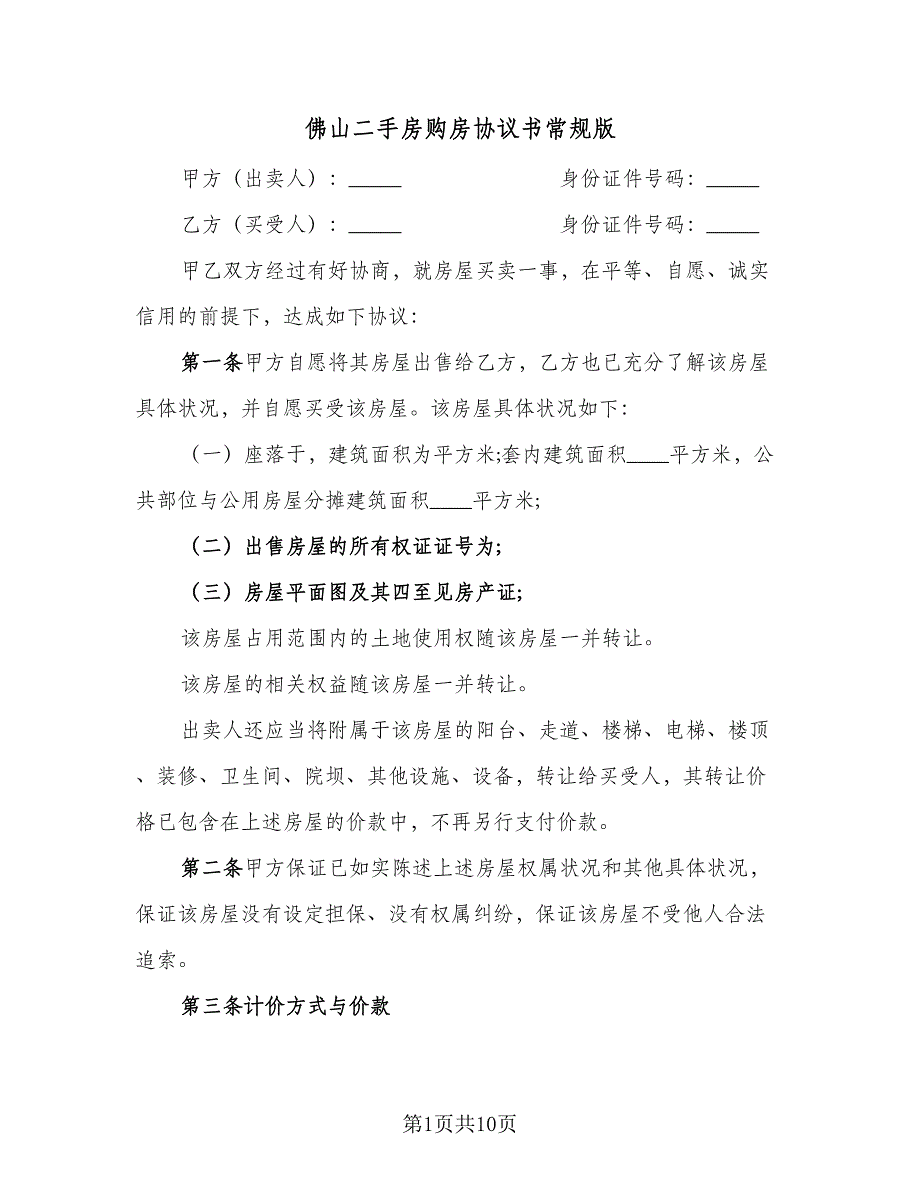 佛山二手房购房协议书常规版
甲方（出卖人）：_____ 身份证件号码：_____
乙方（买受人）：_____ 身份证件号码：_____
甲乙双方经过有好协商，就房屋买卖一事，在平等、自愿、诚实
信用的前提下，达成如下协议：
第一条甲方自愿将其房屋出售给乙方，乙方也已充分了解该房屋
具体状况，并自愿买受该房屋。该房屋具体状况如下：
（一）座落于，建筑面积为平方米;套内建筑面积____平方米，公
共部位与公用房屋分摊建筑面积____平方米;
（二）出售房屋的所有权证证号为;
（三）房屋平面图及其四至见房产证;
该房屋占用范围内的土地使用权随该房屋一并转让。
该房屋的相关权益随该房屋一并转让。
出卖人还应当将附属于该房屋的阳台、走道、楼梯、电梯、楼顶
、装修、卫生间、院坝、其他设施、设备，转让给买受人，其转让价
格已包含在上述房屋的价款中，不再另行支付价款。
第二条甲方保证已如实陈述上述房屋权属状况和其他具体状况，
保证该房屋没有设定担保、没有权属纠纷，保证该房屋不受他人合法
追索。
第三条计价方式与价款
第1页共10页